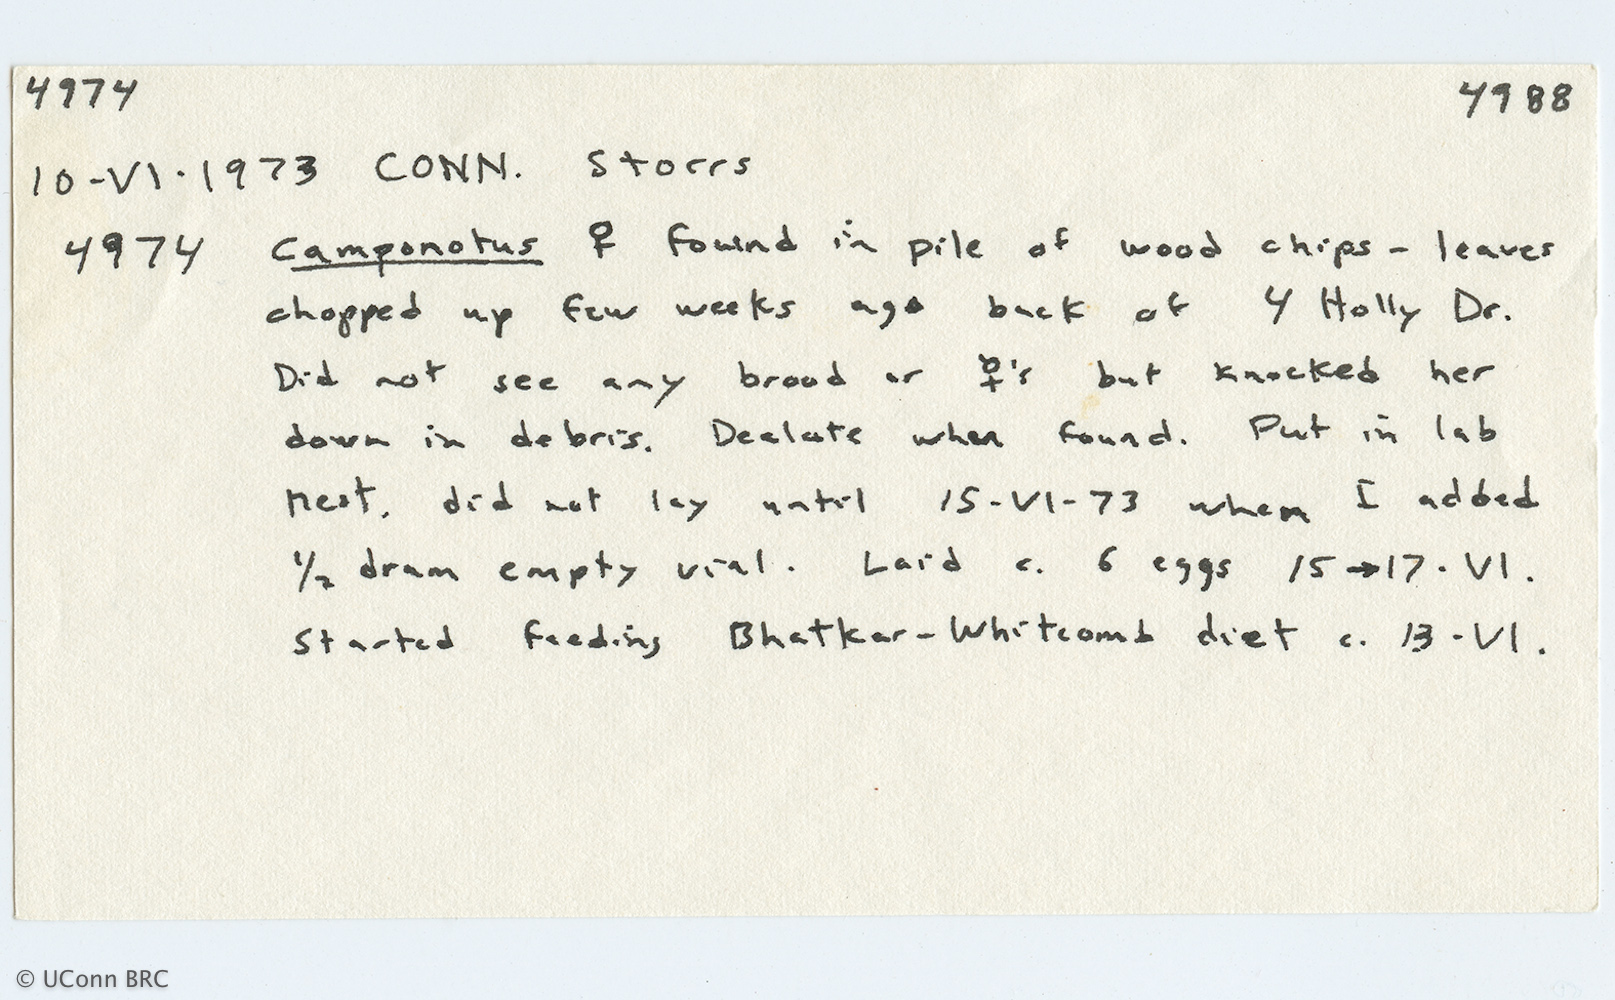 4974 4988
10-VI-1973 CONN. Storrs
4974 Camponotus ♀ found in pile of wood chips - leaves
chopped up few weeks ago back of 4 Holly Dr.
Did not see any brood or ☿'s but knocked her
down in debris. Dealate when found. Put in lab
nest, did not lay until 15-VI-73 when I added
1/2 dram empty vial. Laid c. 6 eggs 15→17-VI.
Started feeding Bhatkar-Whitcomb diet c. 13-VI.
© UConn BRC